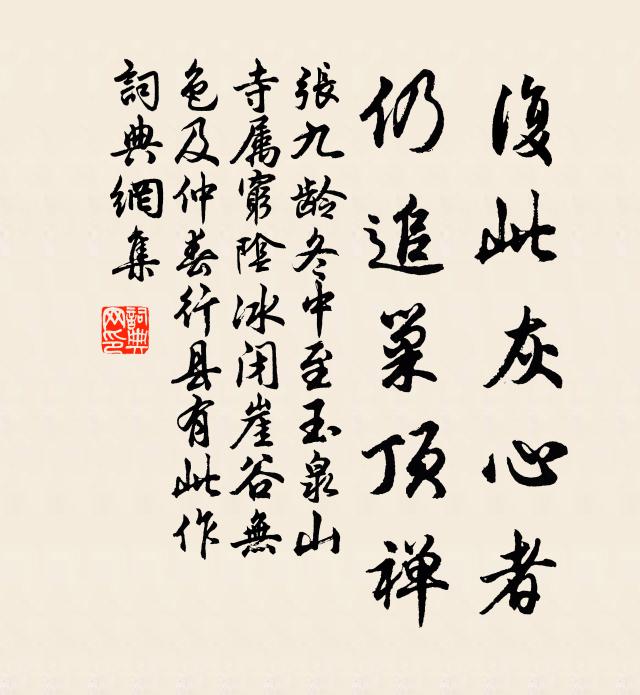 復此灰心者
仍追巢頂禅
張九龄冬中至玉泉山
寺属窮陰冰闭崖谷無
色及仲春行县有此作
詞典網集
詞典
网印